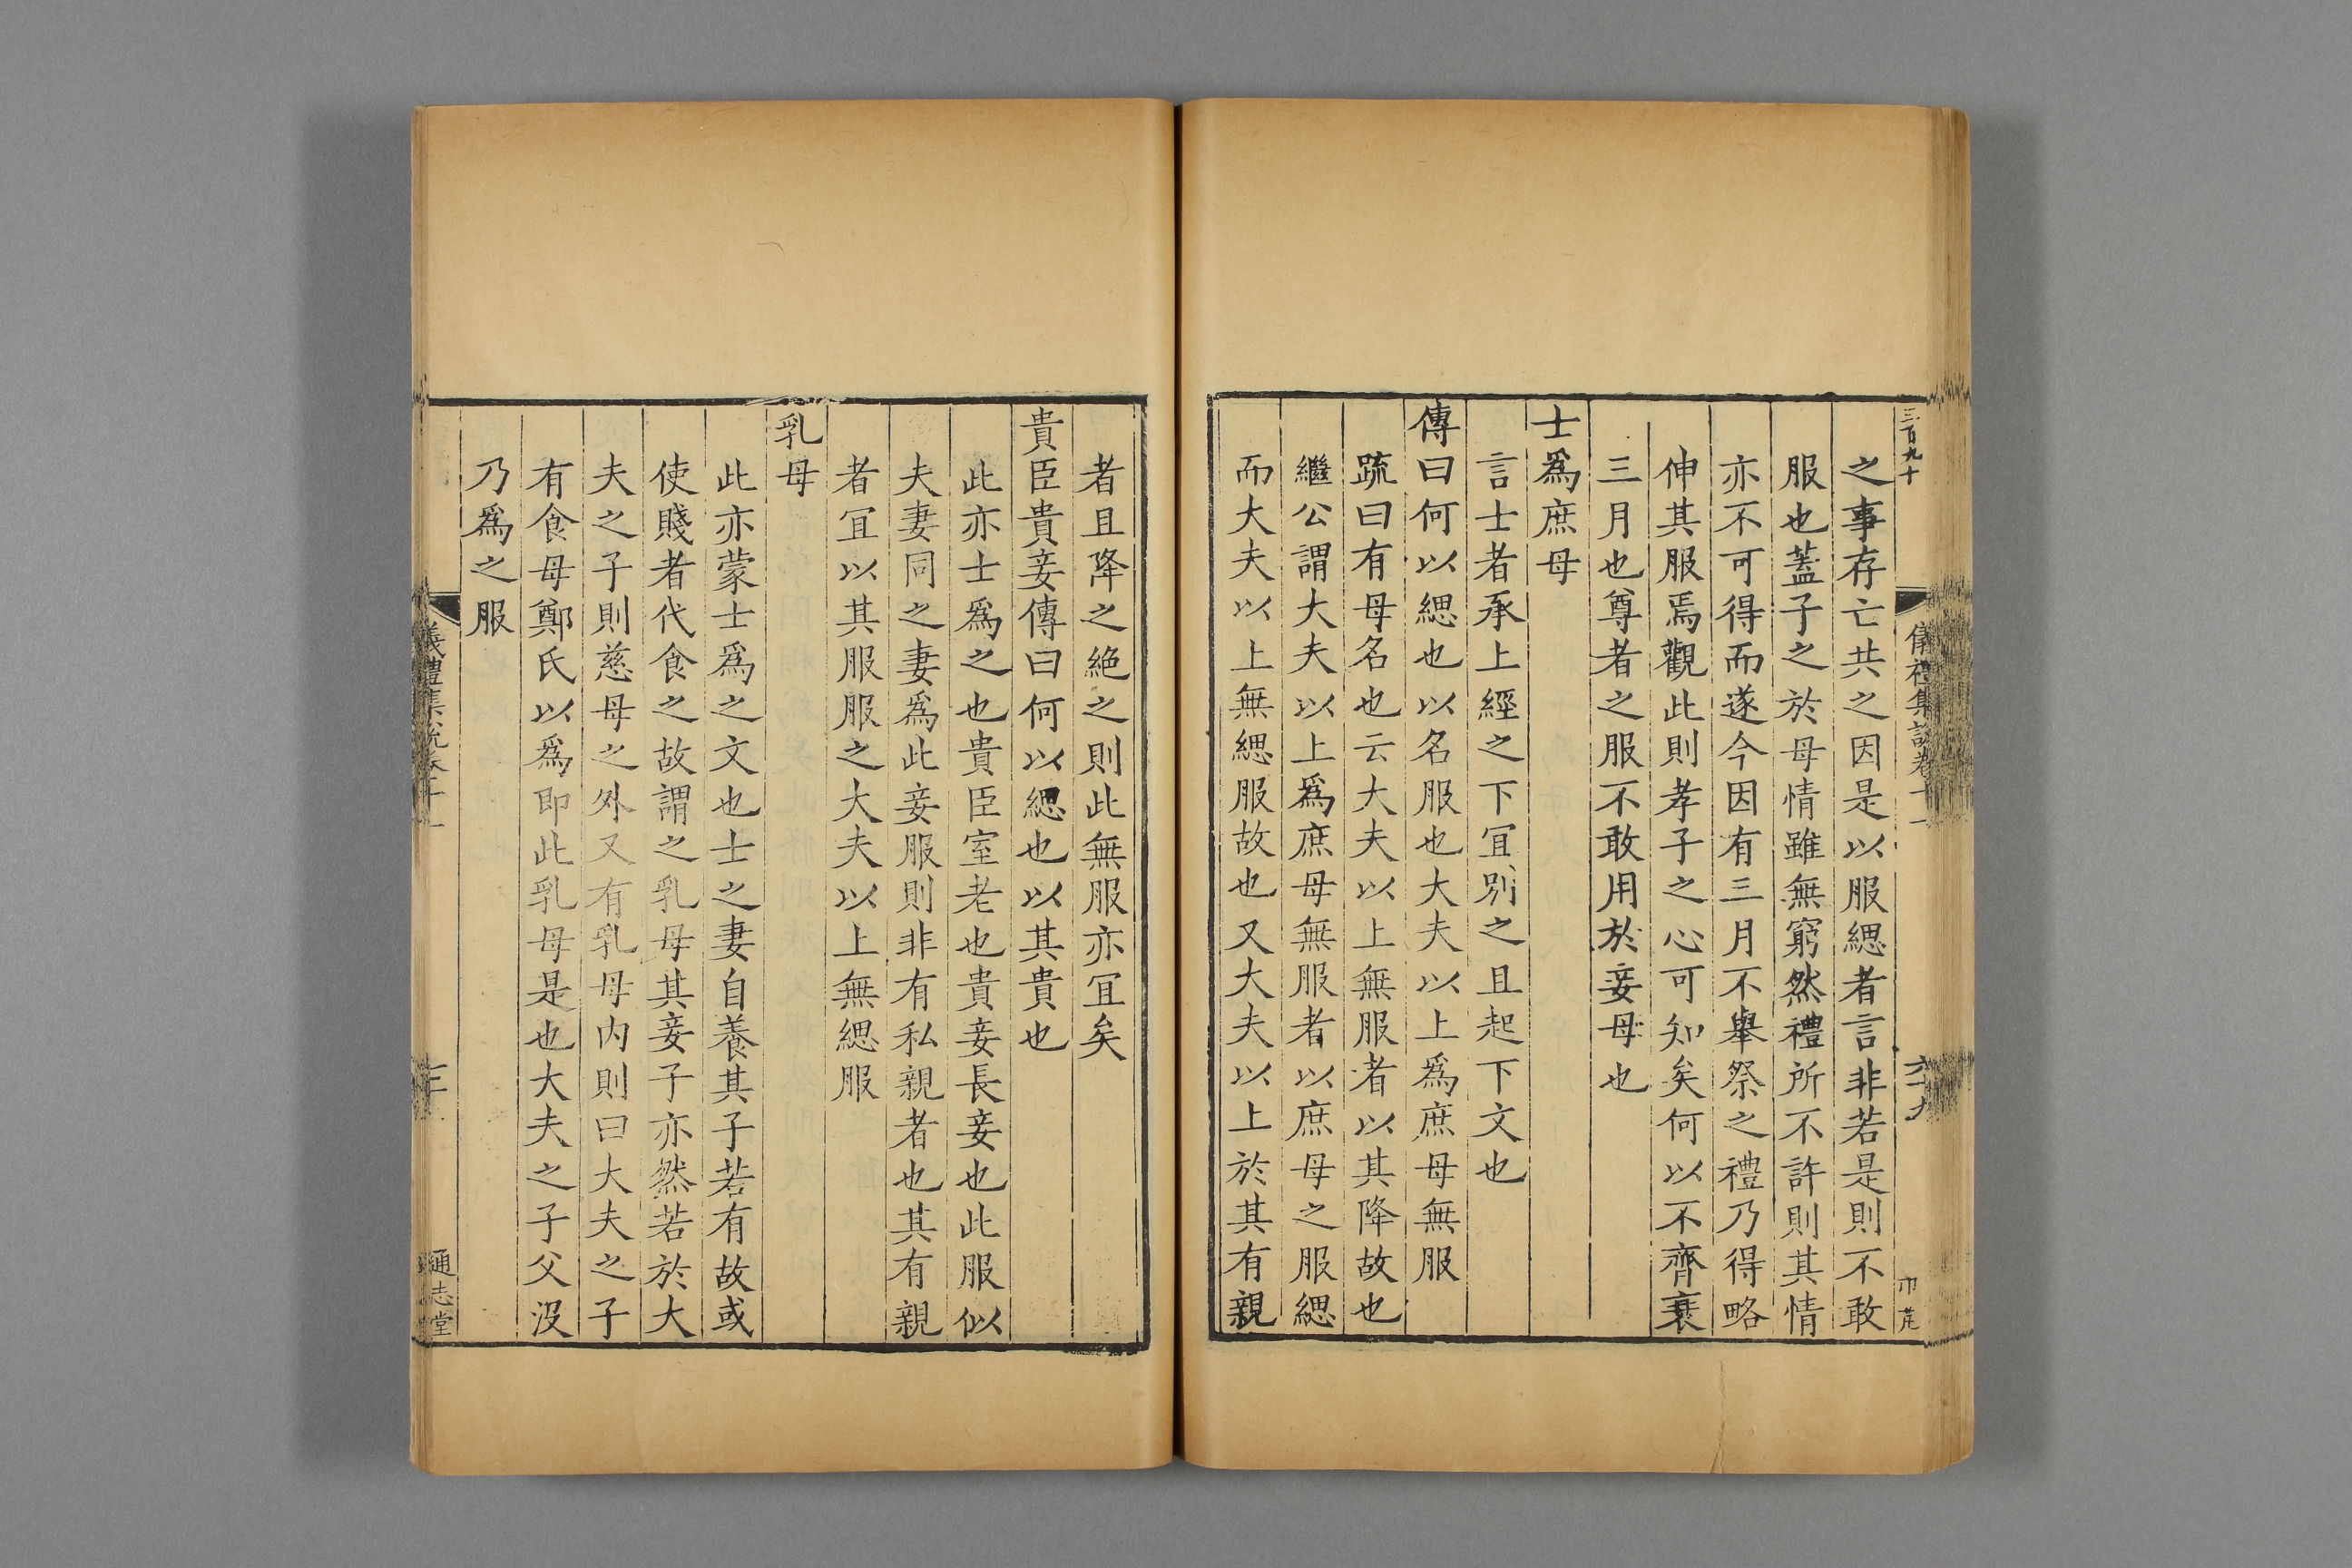 三百九十
儀禮集説卷十一
六十九
之事存亡共之因是以服緦者言非若是則不敢
服也蓋子之於母情雖無窮然禮所不許則其情
亦不可得而遂今因有三月不舉祭之禮乃得略
伸其服焉觀此則孝子之心可知矣何以不齊衰
三月也尊者之服不敢用於妾母也
士爲庶母
言士者承上經之下冝別之且起下文也
傳曰何以緦也以名服也大夫以上爲庶母無服
疏曰有母名也云大夫以上無服者以其降故也
繼公謂大夫以上爲庶母無服者以庶母之服緦
而大夫以上無緦服故也又大夫以上於其有親
者且降之絶之則此無服亦冝矣
貴臣貴妾傳曰何以緦也以其貴也
此亦士爲之也貴臣室老也貴妾長妾也此服似
夫妻同之妻爲此妾服則非有私親者也其有親
者冝以其服服之大夫以上無緦服
乳母
此亦蒙士爲之文也士之妻自養其子若有故或
使賤者代食之故謂之乳母其妾子亦然若於大
夫之子則慈母之外又有乳母内則曰大夫之子
有食母鄭氏以爲即此乳母是也大夫之子父沒
乃爲之服
儀禮集説卷十一
通志堂